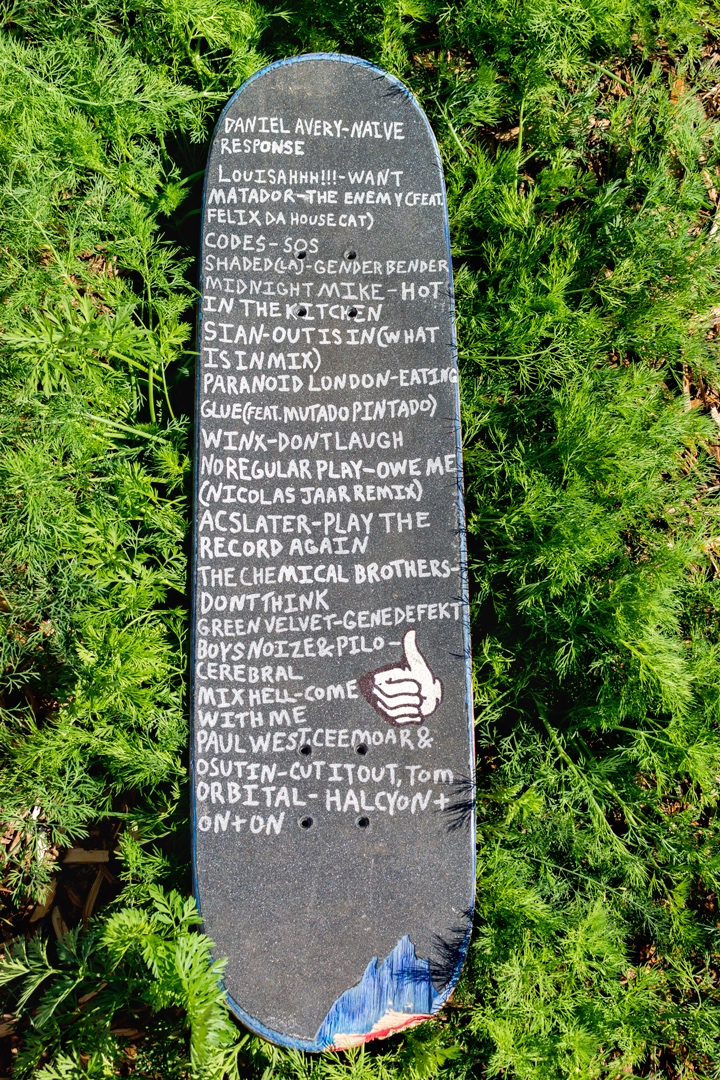 DANIEL AVERY-NAIVE
RESPONSE
LOUISAHHH!!!-WANT
MATADOR-THE ENEMY (FEAT.
FELIX DA HOUSE CAT)
CODES-SOS
SHADED(LA)-GENDER BENDER
MIDNIGHT MIKE-HOT
IN THE KITCHEN
SIAN-OUT IS IN (WHAT
IS IN MIX)
PARANOID LONDON-EATING
GLUE (FEAT. MUTADO PINTADO)
WINX-DONT LAUGH
NO REGULAR PLAY-OWE ME
(NICOLAS JAAR REMIX)
AC SLATER-PLAY THE
RECORD AGAIN
THE CHEMICAL BROTHERS-
DONT THINK
GREEN VELVET-GENEDEFEKT
BOYS NOIZE & PILO-
CEREBRAL
MIXHELL-COME
WITH ME
PAUL WEST, CEEMOAR &
OSUTIN-CUT IT OUT, TOM
ORBITAL-HALCYON+
ON+ON